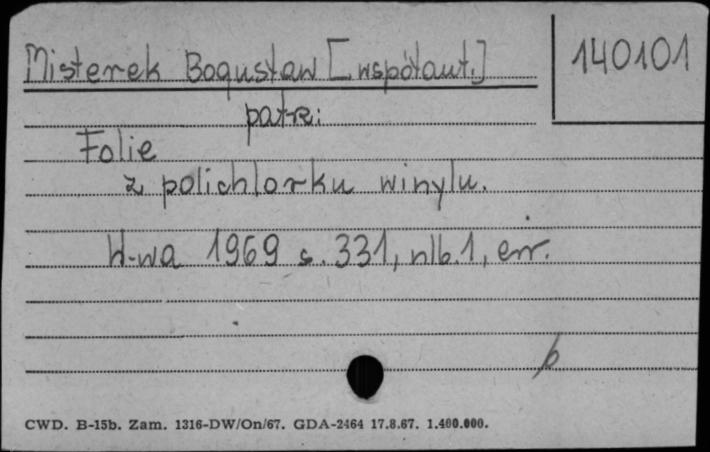 Misterek Bogusław [współaut.]
140101
patrz:
Folie
z polichlorku winylu.
W-wa 1969 s. 331, nlb. 1, err.
b
CWD. B-15b. Zam. 1316-DW/On/67. GDA-2464 17.8.67. 1.400.000.